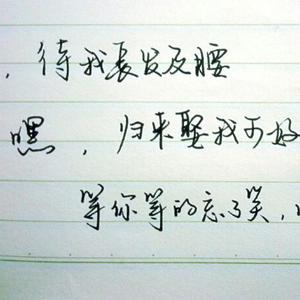 ，待我长发及腰
嘿，归来娶我可好
等你等的忘了笑，